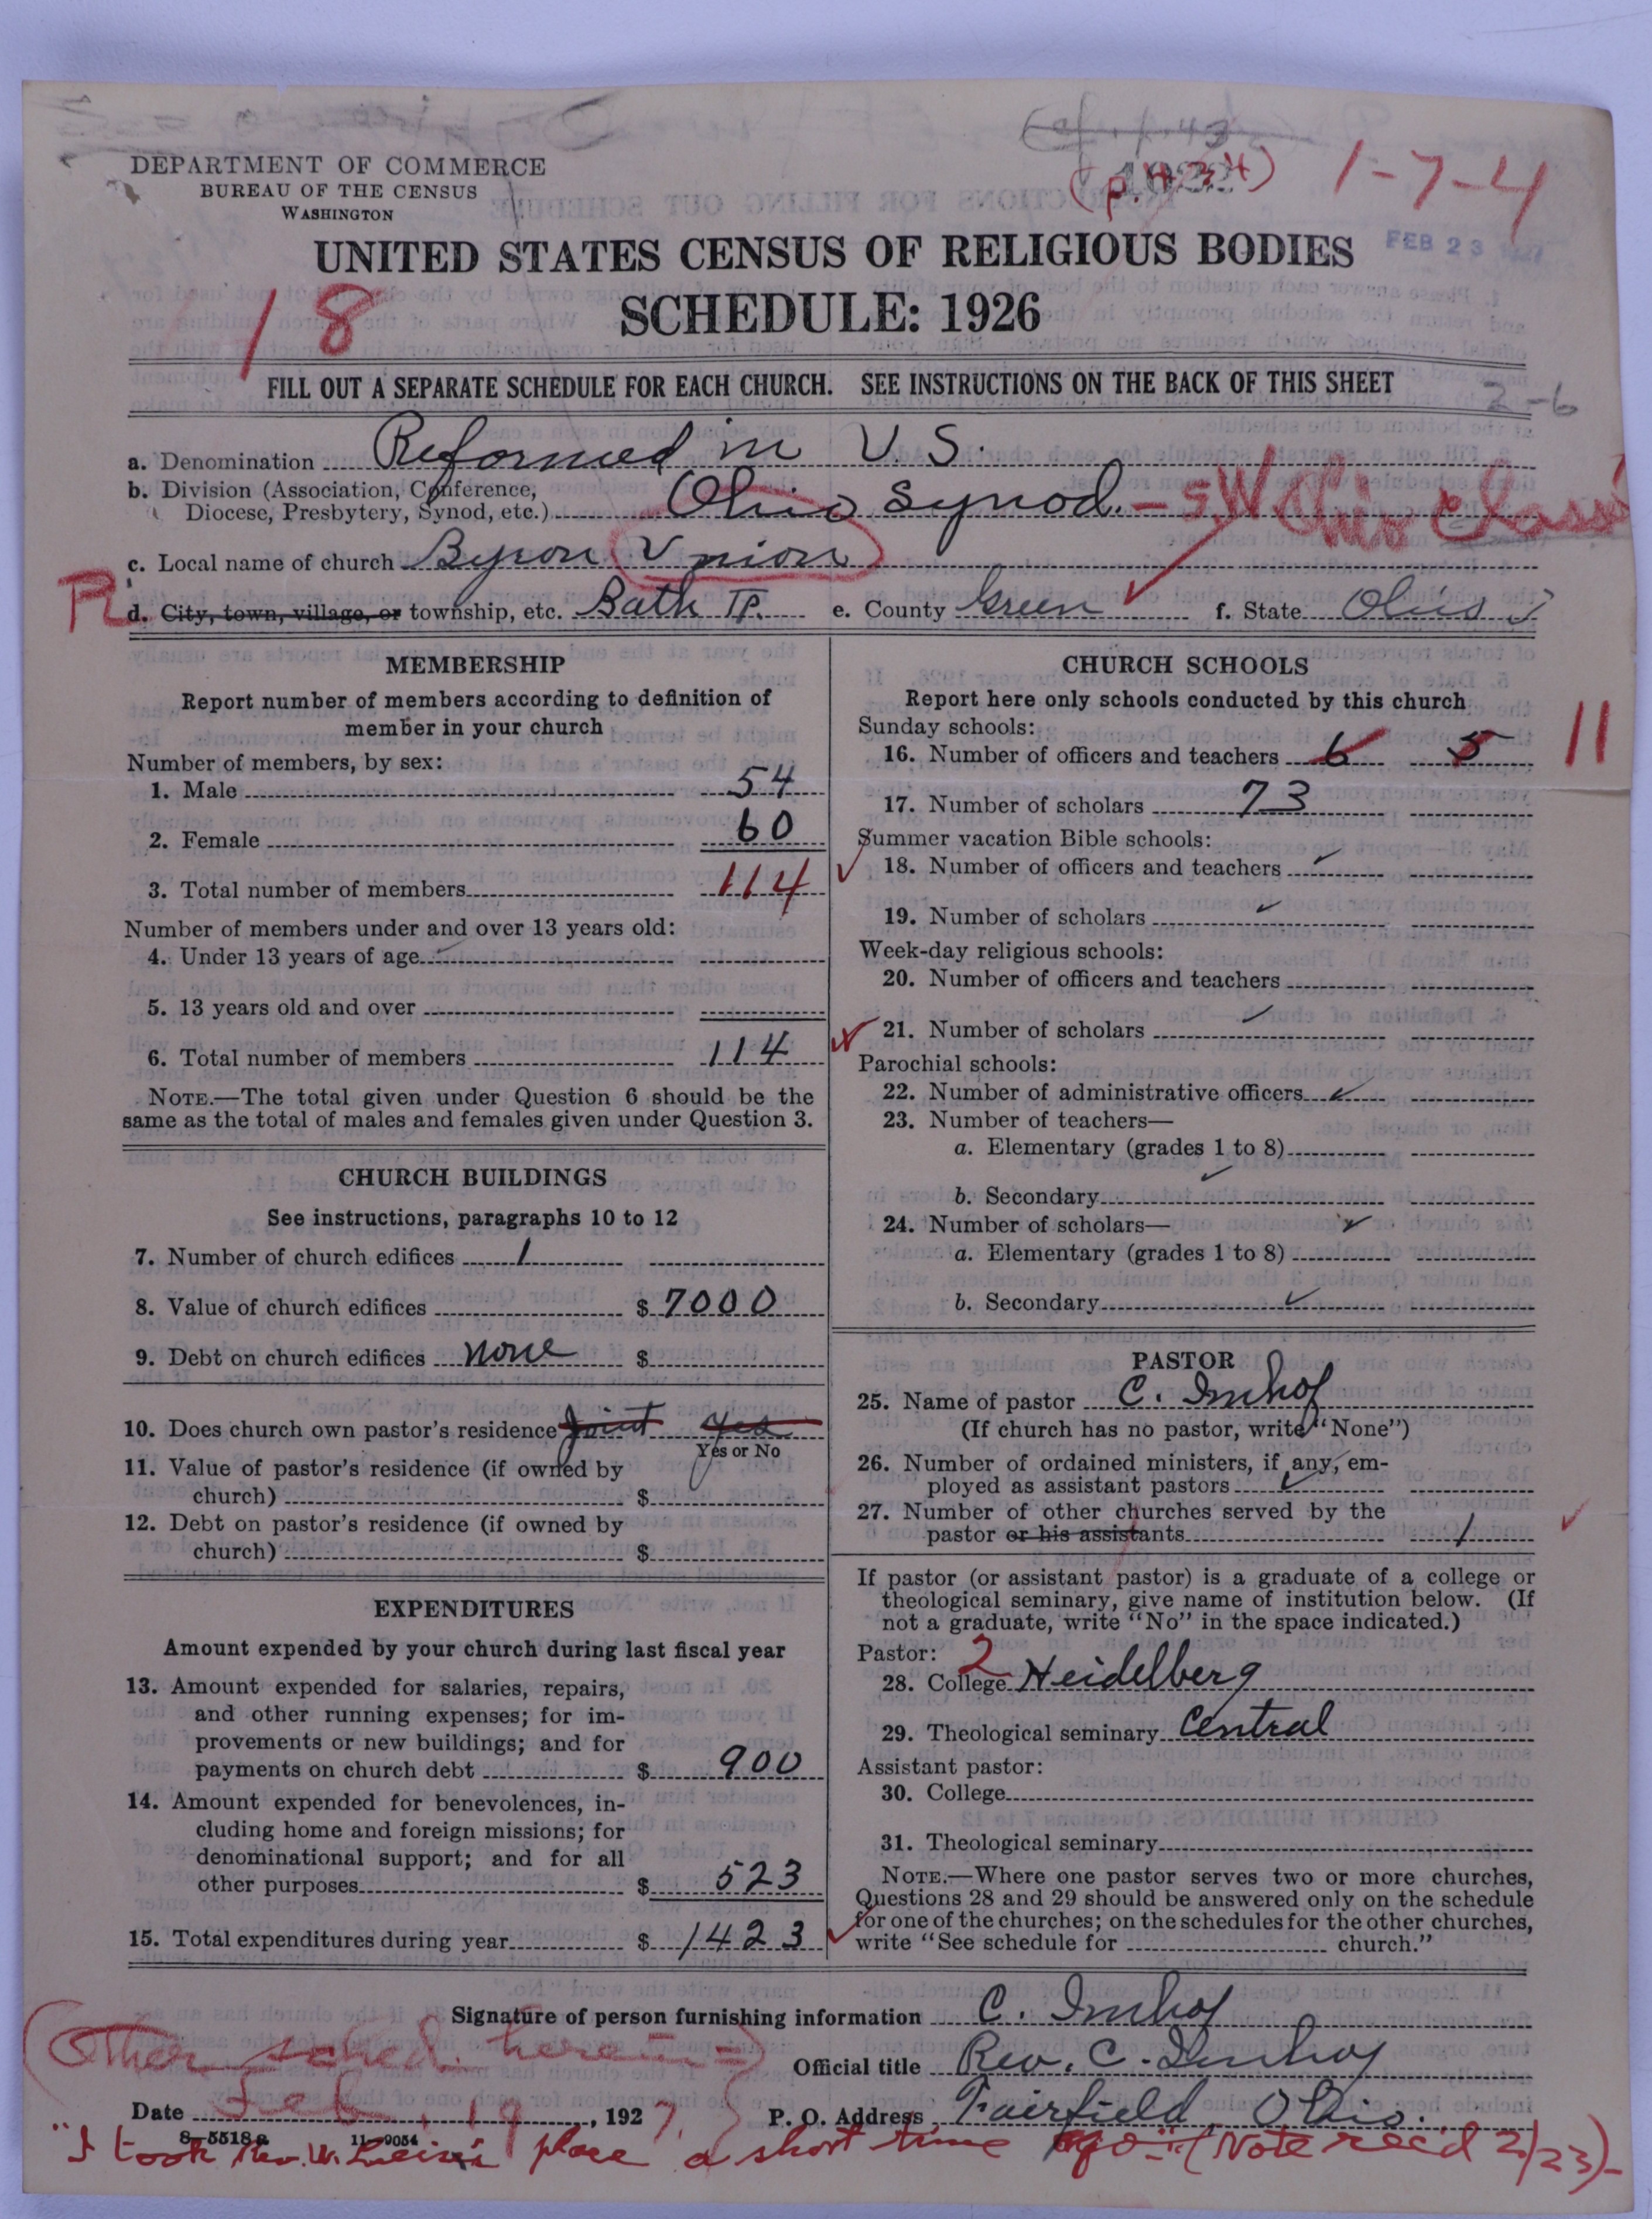 DEPARTMENT OF COMMERCE
BUREAU OF THE CENSUS
WASHINGTON
(p. 434) 1-7-4
UNITED STATES CENSUS OF RELIGIOUS BODIES
FEB 23 1927
18
SCHEDULE: 1926
FILL OUT A SEPARATE SCHEDULE FOR EACH CHURCH. SEE INSTRUCTIONS ON THE BACK OF THIS SHEET
2-6
a. Denomination Reformed in U. S.
b. Division (Association, Conference,
Diocese, Presbytery, Synod, etc.) Ohio Synod. - SW Ohio Classis
c. Local name of church Byron Union
R d. City, town, village, or township, etc. Bath Tp. e. County Green f. State Ohio
MEMBERSHIP
Report number of members according to definition of
member in your church
Number of members, by sex:
1. Male 54
2. Female 60
3. Total number of members 114
Number of members under and over 13 years old:
4. Under 13 years of age
5. 13 years old and over
6. Total number of members 114
NOTE.—The total given under Question 6 should be the
same as the total of males and females given under Question 3.
CHURCH BUILDINGS
See instructions, paragraphs 10 to 12
7. Number of church edifices 1
8. Value of church edifices $ 7000
9. Debt on church edifices none $
10. Does church own pastor's residence Joint Yes
Yes or No
11. Value of pastor's residence (if owned by
church) $
12. Debt on pastor's residence (if owned by
church) $
EXPENDITURES
Amount expended by your church during last fiscal year
13. Amount expended for salaries, repairs,
and other running expenses; for im-
provements or new buildings; and for
payments on church debt $ 900
14. Amount expended for benevolences, in-
cluding home and foreign missions; for
denominational support; and for all
other purposes $ 523
15. Total expenditures during year $ 1423
CHURCH SCHOOLS
Report here only schools conducted by this church
Sunday schools:
16. Number of officers and teachers 6 5 11
17. Number of scholars 73
Summer vacation Bible schools:
18. Number of officers and teachers
19. Number of scholars
Week-day religious schools:
20. Number of officers and teachers
21. Number of scholars
Parochial schools:
22. Number of administrative officers
23. Number of teachers—
a. Elementary (grades 1 to 8)
b. Secondary
24. Number of scholars—
a. Elementary (grades 1 to 8)
b. Secondary
PASTOR
25. Name of pastor C. Imhof
(If church has no pastor, write "None")
26. Number of ordained ministers, if any, em-
ployed as assistant pastors
27. Number of other churches served by the
pastor or his assistants 1
If pastor (or assistant pastor) is a graduate of a college or
theological seminary, give name of institution below. (If
not a graduate, write "No" in the space indicated.)
Pastor: 2
28. College Heidelberg
29. Theological seminary Central
Assistant pastor:
30. College
31. Theological seminary
NOTE.—Where one pastor serves two or more churches,
Questions 28 and 29 should be answered only on the schedule
for one of the churches; on the schedules for the other churches,
write "See schedule for church."
Signature of person furnishing information C. Imhof
(Other sched. herein =)
Official title Rev. C. Imhof
Date Feb. 19, 1927
P. O. Address Fairfield, Ohio.
8-5518a 11-9054
"I took Rev. W. place a short time ago" (Note rec'd 2/23)-